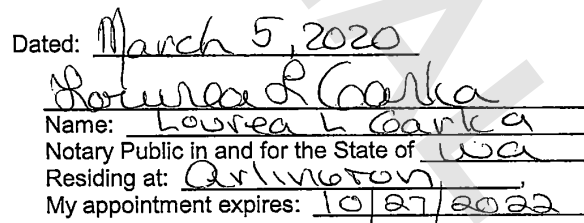 Dated: March 5, 2020
Lourea L Garka
Name: Lourea L Garka
Notary Public in and for the State of WA
Residing at: Arlington,
My appointment expires: 10/27/2022